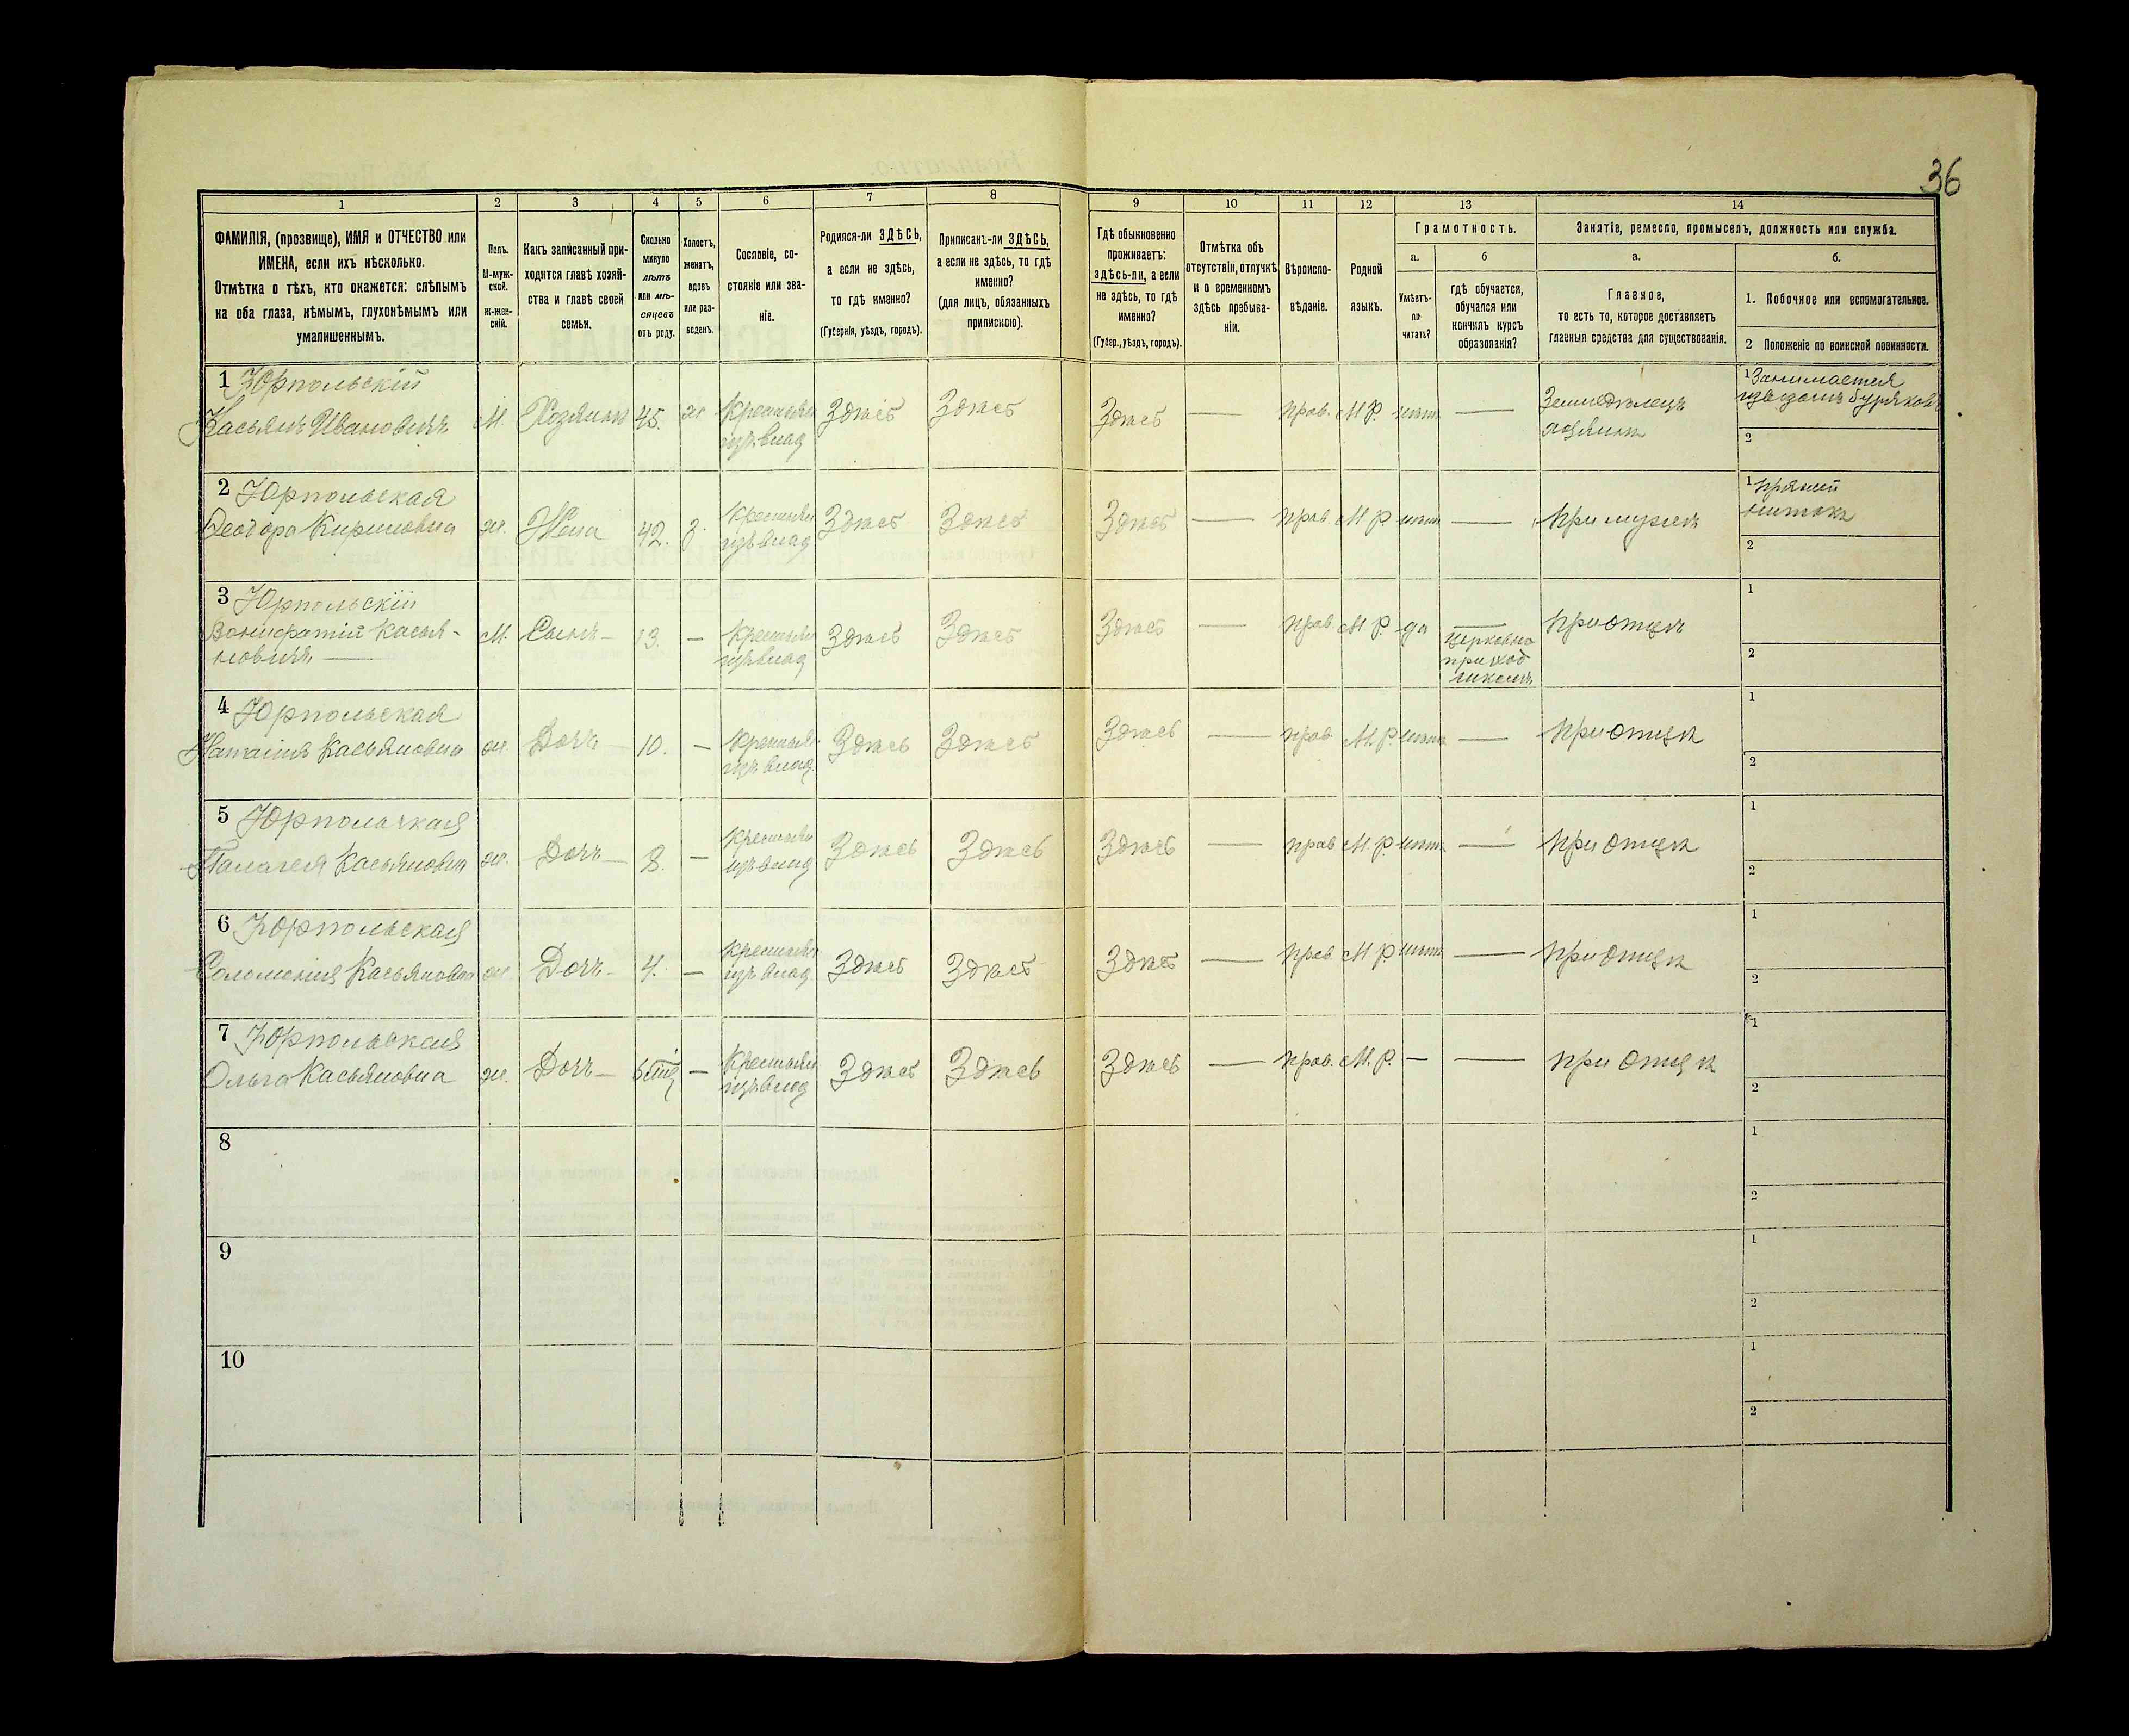 36
1 2 3 4 5 6 7 8 9 10 11 12 13 14
ФАМИЛІЯ, (прозвище), ИМЯ и ОТЧЕСТВО или
ИМЕНА, если ихъ нѣсколько.
Отмѣтка о тѣхъ, кто окажется: слѣпымъ
на оба глаза, нѣмымъ, глухонѣмымъ или
умалишеннымъ.
Полъ.
М-муж-
ской.
Ж-жен-
скій.
Какъ записанный при-
ходится главѣ хозяй-
ства и главѣ своей
семьи.
Сколько
минуло
лѣтъ
или мѣ-
сяцевъ
отъ роду.
Холостъ,
женатъ,
вдовъ
или раз-
веденъ.
Сословіе, со-
стояніе или зва-
ніе.
Родился-ли ЗДѢСЬ,
а если не здѣсь,
то гдѣ именно?
(Губернія, уѣздъ, городъ).
Приписанъ-ли ЗДѢСЬ,
а если не здѣсь, то гдѣ
именно?
(для лицъ, обязанныхъ
припискою).
Гдѣ обыкновенно
проживаетъ:
здѣсь-ли, а если
не здѣсь, то гдѣ
именно?
(Губер., уѣздъ, городъ).
Отмѣтка объ
отсутствіи, отлучкѣ
и о временномъ
здѣсь пребыва-
ніи.
Вѣроиспо-
вѣданіе.
Родной
языкъ.
Грамотность.
а.
Умѣетъ-
ли
читать?
б
гдѣ обучается,
обучался или
кончилъ курсъ
образованія?
Занятіе, ремесло, промыселъ, должность или служба.
а.
Главное,
то есть то, которое доставляетъ
главныя средства для существованія.
б.
1. Побочное или вспомогательное.
2 Положеніе по воинской повинности.
1 Юрпольскій
Касьянъ Ивановичъ М. Хозяинъ 45. ж Крестьян
изъ влад Здѣсь Здѣсь Здѣсь — прав. М Р. нѣт — Земледѣлецъ
хозяинъ
1 Занимается
извозомъ буряковъ
2
2 Юрпольская
Феодора Кириловна ж. Жена 42. з. Крестьян
изъ влад Здѣсь Здѣсь Здѣсь — прав. М Р нѣт — при мужѣ
1 пряжей
нитокъ
2
3 Юрпольскій
Вонифатій Касья-
новичъ — М. Сынъ — 13. — Крестьян
изъ влад Здѣсь Здѣсь Здѣсь — прав. М Р. да
церковно
приход
школѣ
при отцѣ
1
2
4 Юрпольская
Наталія Касьяновна ж. Дочь — 10. — Крестьян
изъ влад. Здѣсь Здѣсь Здѣсь — прав М. Р. нѣт — при отцѣ
1
2
5 Юрпольская
Палагея Касьяновна ж. Дочь — 8. — Крестьян
изъ влад Здѣсь Здѣсь Здѣсь — прав М. Р. нѣт — при отцѣ
1
2
6 Юрпольская
Соломонія Касьяновна ж. Дочь — 4. — Крестьян
изъ влад Здѣсь Здѣсь Здѣсь — прав М Р нѣт — при отцѣ
1
2
7 Юрпольская
Ольга Касьяновна ж. Дочь — — Крестьян
изъ влад Здѣсь Здѣсь Здѣсь — прав. М. Р. — — при отцѣ
1
2
8
1
2
9
1
2
10
1
2